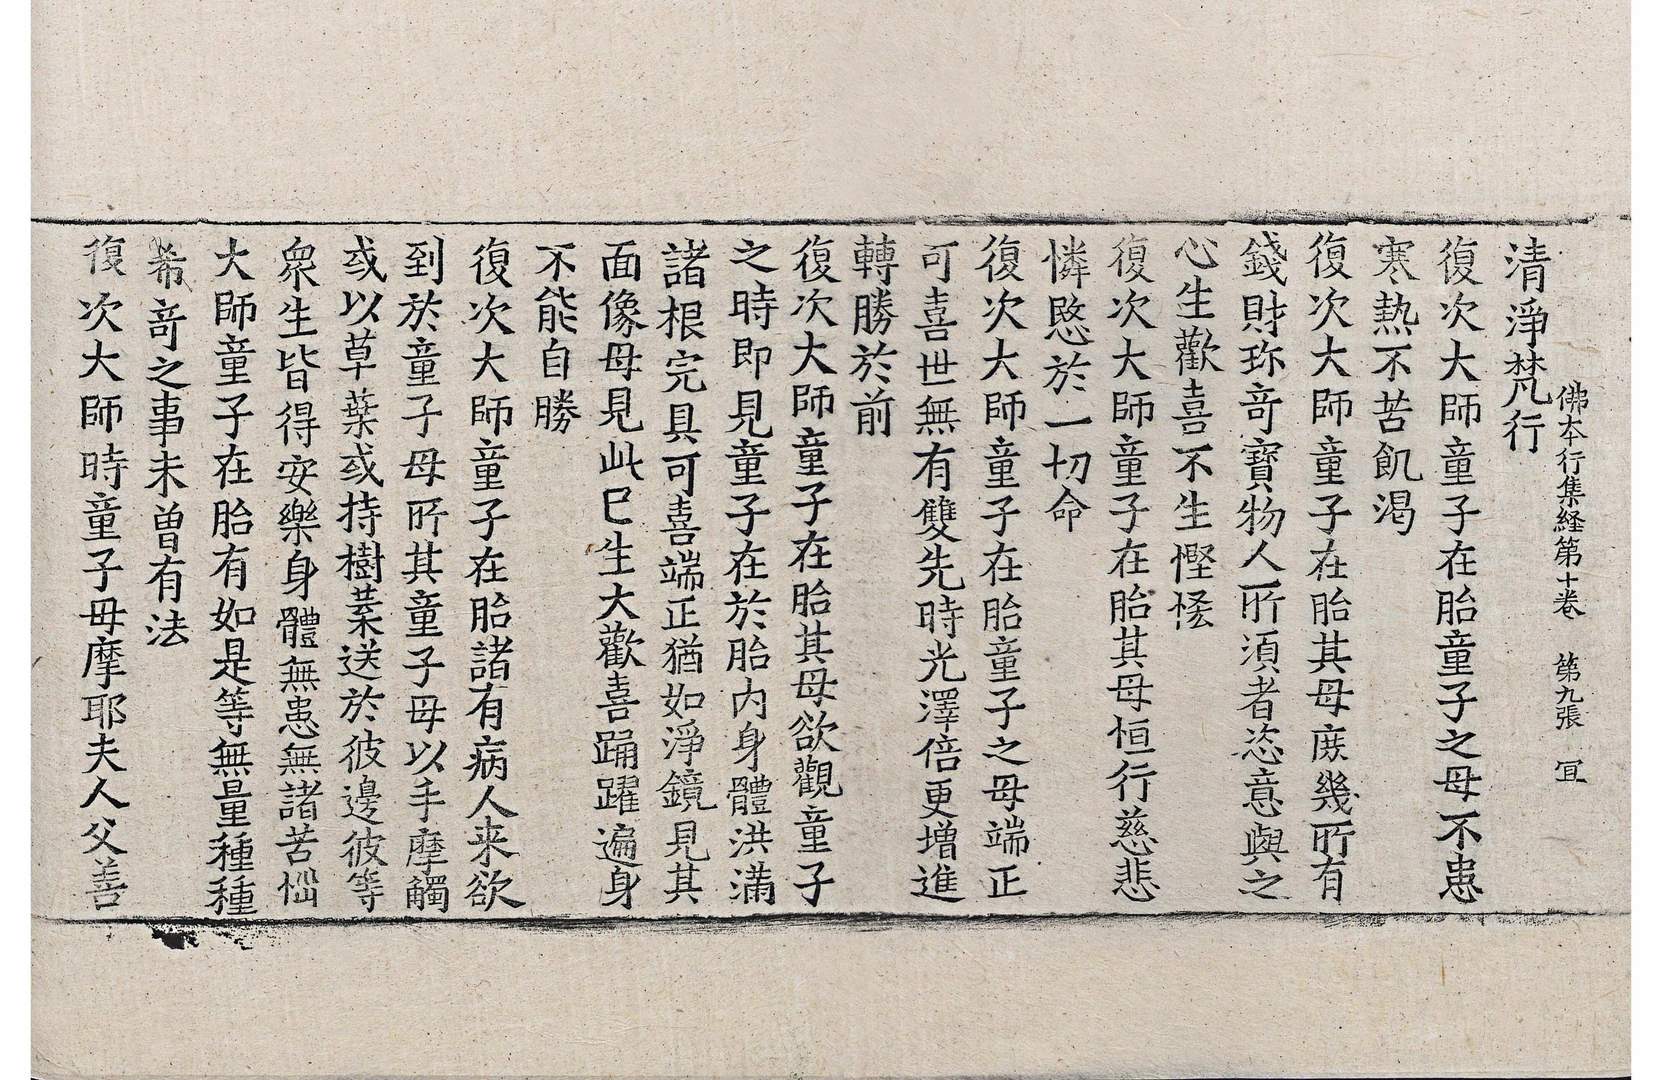 佛本行集経第十卷 第九張 冝
清淨梵行
復次大師童子在胎童子之母不患
寒熱不苦飢渴
復次大師童子在胎其母庻幾所有
錢財珎竒寶物人所湏者恣意與之
心生歡喜不生慳悋
復次大師童子在胎其母恒行慈悲
憐愍於一切命
復次大師童子在胎童子之母端正
可喜世無有雙先時光澤倍更增進
轉勝於前
復次大師童子在胎其母欲觀童子
之時即見童子在於胎內身體洪滿
諸根完具可喜端正猶如淨鏡見其
面像母見此已生大歡喜踊躍遍身
不能自勝
復次大師童子在胎諸有病人来欲
到於童子母所其童子母以手摩觸
或以草葉或持樹葉送於彼邊彼等
衆生皆得安樂身體無患無諸苦惱
大師童子在胎有如是等無量種種
希竒之事未曽有法
復次大師時童子母摩耶夫人父善